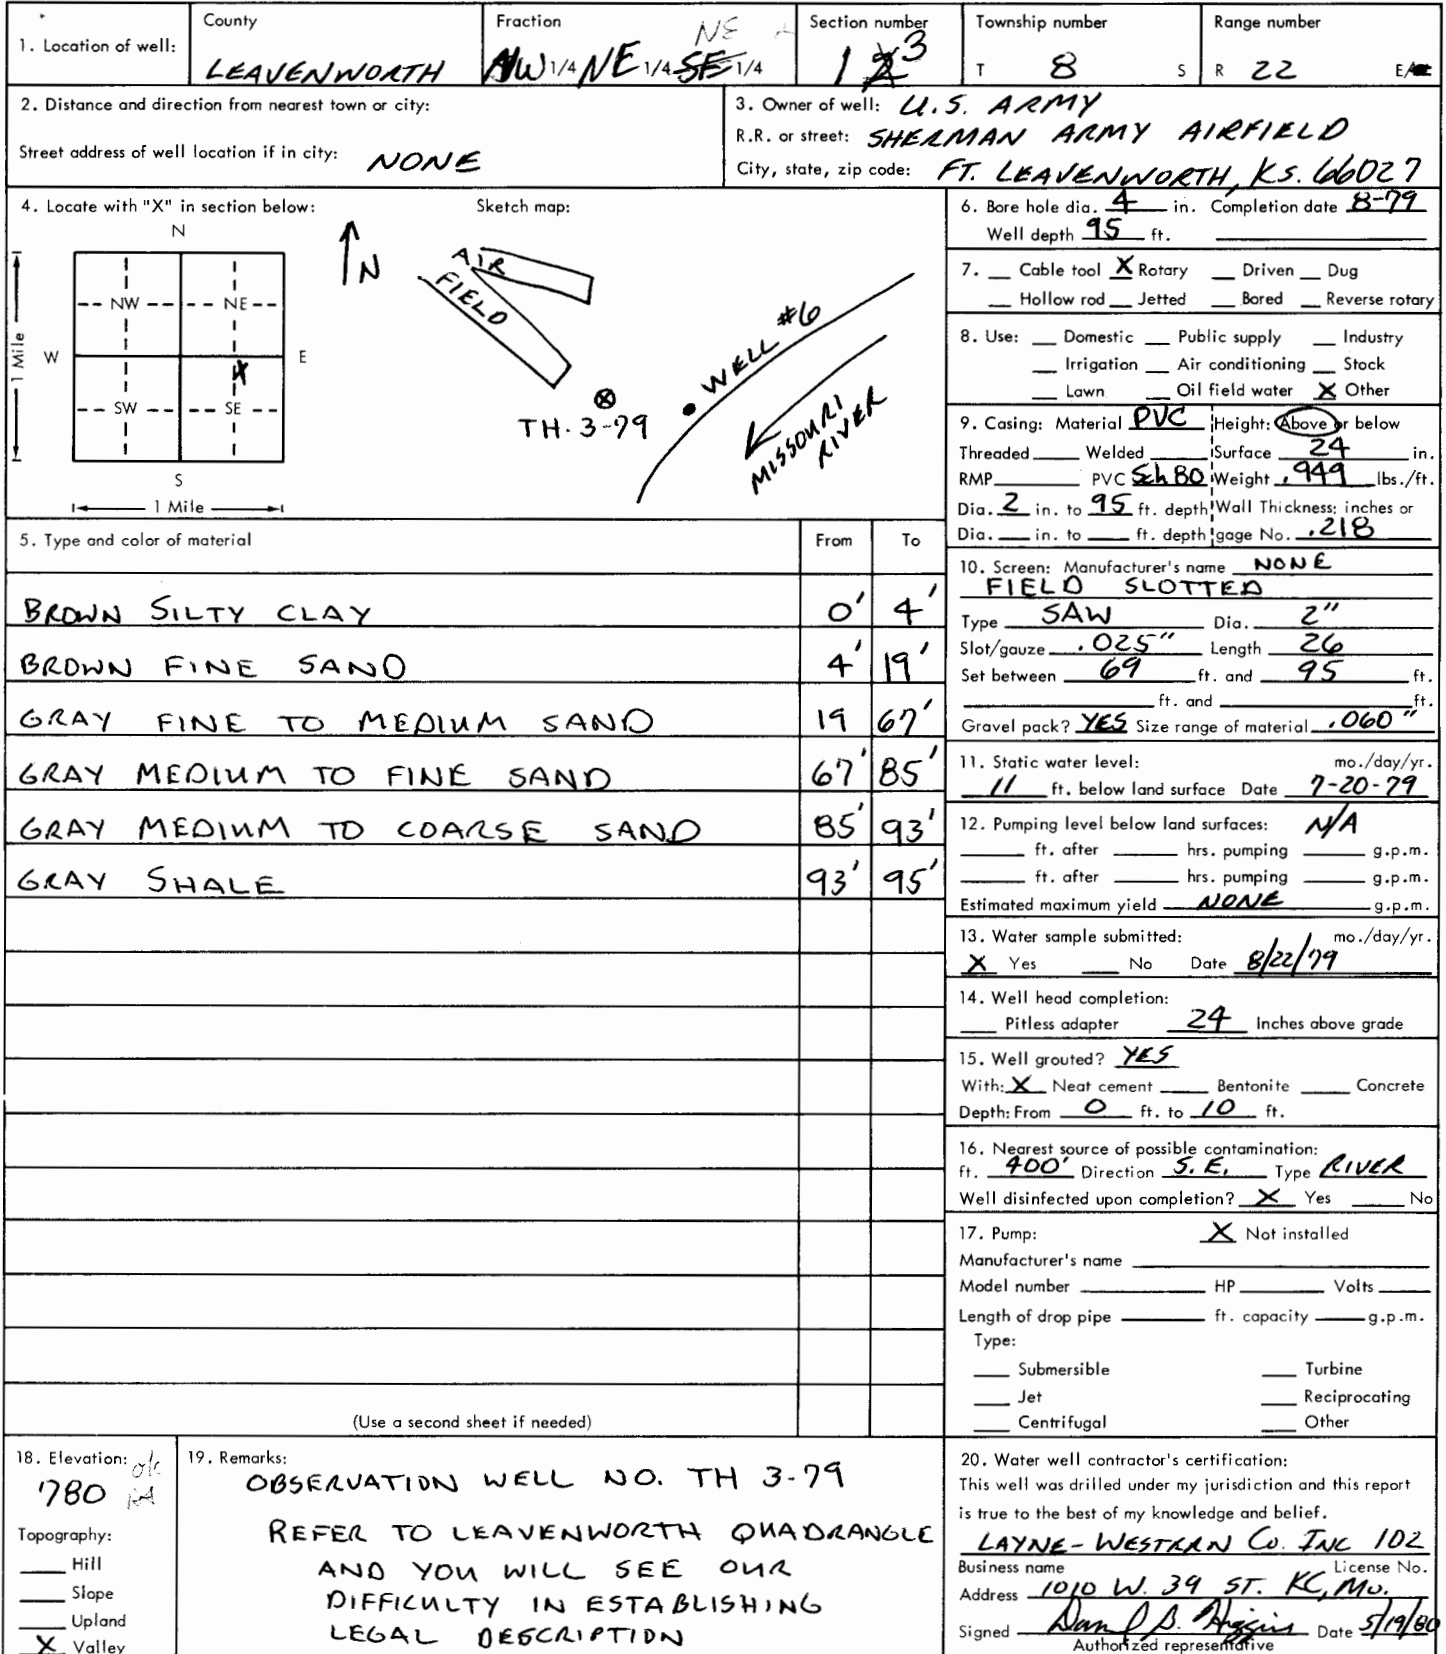 1. Location of well:
County
LEAVENWORTH
Fraction
NE
NW 1/4 NE 1/4 SE 1/4
Section number
1 3
Township number
T 8 S
Range number
R 22 E/
2. Distance and direction from nearest town or city:
Street address of well location if in city: NONE
3. Owner of well: U.S. ARMY
R.R. or street: SHERMAN ARMY AIRFIELD
City, state, zip code: FT. LEAVENWORTH, KS. 66027
4. Locate with "X" in section below:
N
NW NE
1 Mile
W E
X
SW SE
S
1 Mile
Sketch map:
N
AIR
FIELD
TH. 3-79
WELL #6
MISSOURI
RIVER
5. Type and color of material From To
BROWN SILTY CLAY 0' 4'
BROWN FINE SAND 4' 19'
GRAY FINE TO MEDIUM SAND 19 67'
GRAY MEDIUM TO FINE SAND 67' 85'
GRAY MEDIUM TO COARSE SAND 85' 93'
GRAY SHALE 93' 95'
(Use a second sheet if needed)
6. Bore hole dia. 4 in. Completion date 8-79
Well depth 95 ft.
7. Cable tool X Rotary Driven Dug
Hollow rod Jetted Bored Reverse rotary
8. Use: Domestic Public supply Industry
Irrigation Air conditioning Stock
Lawn Oil field water X Other
9. Casing: Material PVC Height: Above or below
Threaded Welded Surface 24 in.
RMP PVC Sch 80 Weight .949 lbs./ft.
Dia. 2 in. to 95 ft. depth Wall Thickness: inches or
Dia. in. to ft. depth gage No. .218
10. Screen: Manufacturer's name NONE
FIELD SLOTTED
Type SAW Dia. 2"
Slot/gauze .025" Length 26
Set between 69 ft. and 95 ft.
ft. and ft.
Gravel pack? YES Size range of material .060"
11. Static water level: mo./day/yr.
11 ft. below land surface Date 7-20-79
12. Pumping level below land surfaces: N/A
ft. after hrs. pumping g.p.m.
ft. after hrs. pumping g.p.m.
Estimated maximum yield NONE g.p.m.
13. Water sample submitted: mo./day/yr.
X Yes No Date 8/22/79
14. Well head completion:
Pitless adapter 24 Inches above grade
15. Well grouted? YES
With: X Neat cement Bentonite Concrete
Depth: From 0 ft. to 10 ft.
16. Nearest source of possible contamination:
ft. 400' Direction S.E. Type RIVER
Well disinfected upon completion? X Yes No
17. Pump: X Not installed
Manufacturer's name
Model number HP Volts
Length of drop pipe ft. capacity g.p.m.
Type:
Submersible Turbine
Jet Reciprocating
Centrifugal Other
18. Elevation: ok
780
Topography:
Hill
Slope
Upland
X Valley
19. Remarks:
OBSERVATION WELL NO. TH 3-79
REFER TO LEAVENWORTH QUADRANGLE
AND YOU WILL SEE OUR
DIFFICULTY IN ESTABLISHING
LEGAL DESCRIPTION
20. Water well contractor's certification:
This well was drilled under my jurisdiction and this report
is true to the best of my knowledge and belief.
LAYNE-WESTERN Co. INC 102
Business name License No.
Address 1010 W. 39 ST. KC, Mo.
Signed B. Higgins Date 5/19/80
Authorized representative